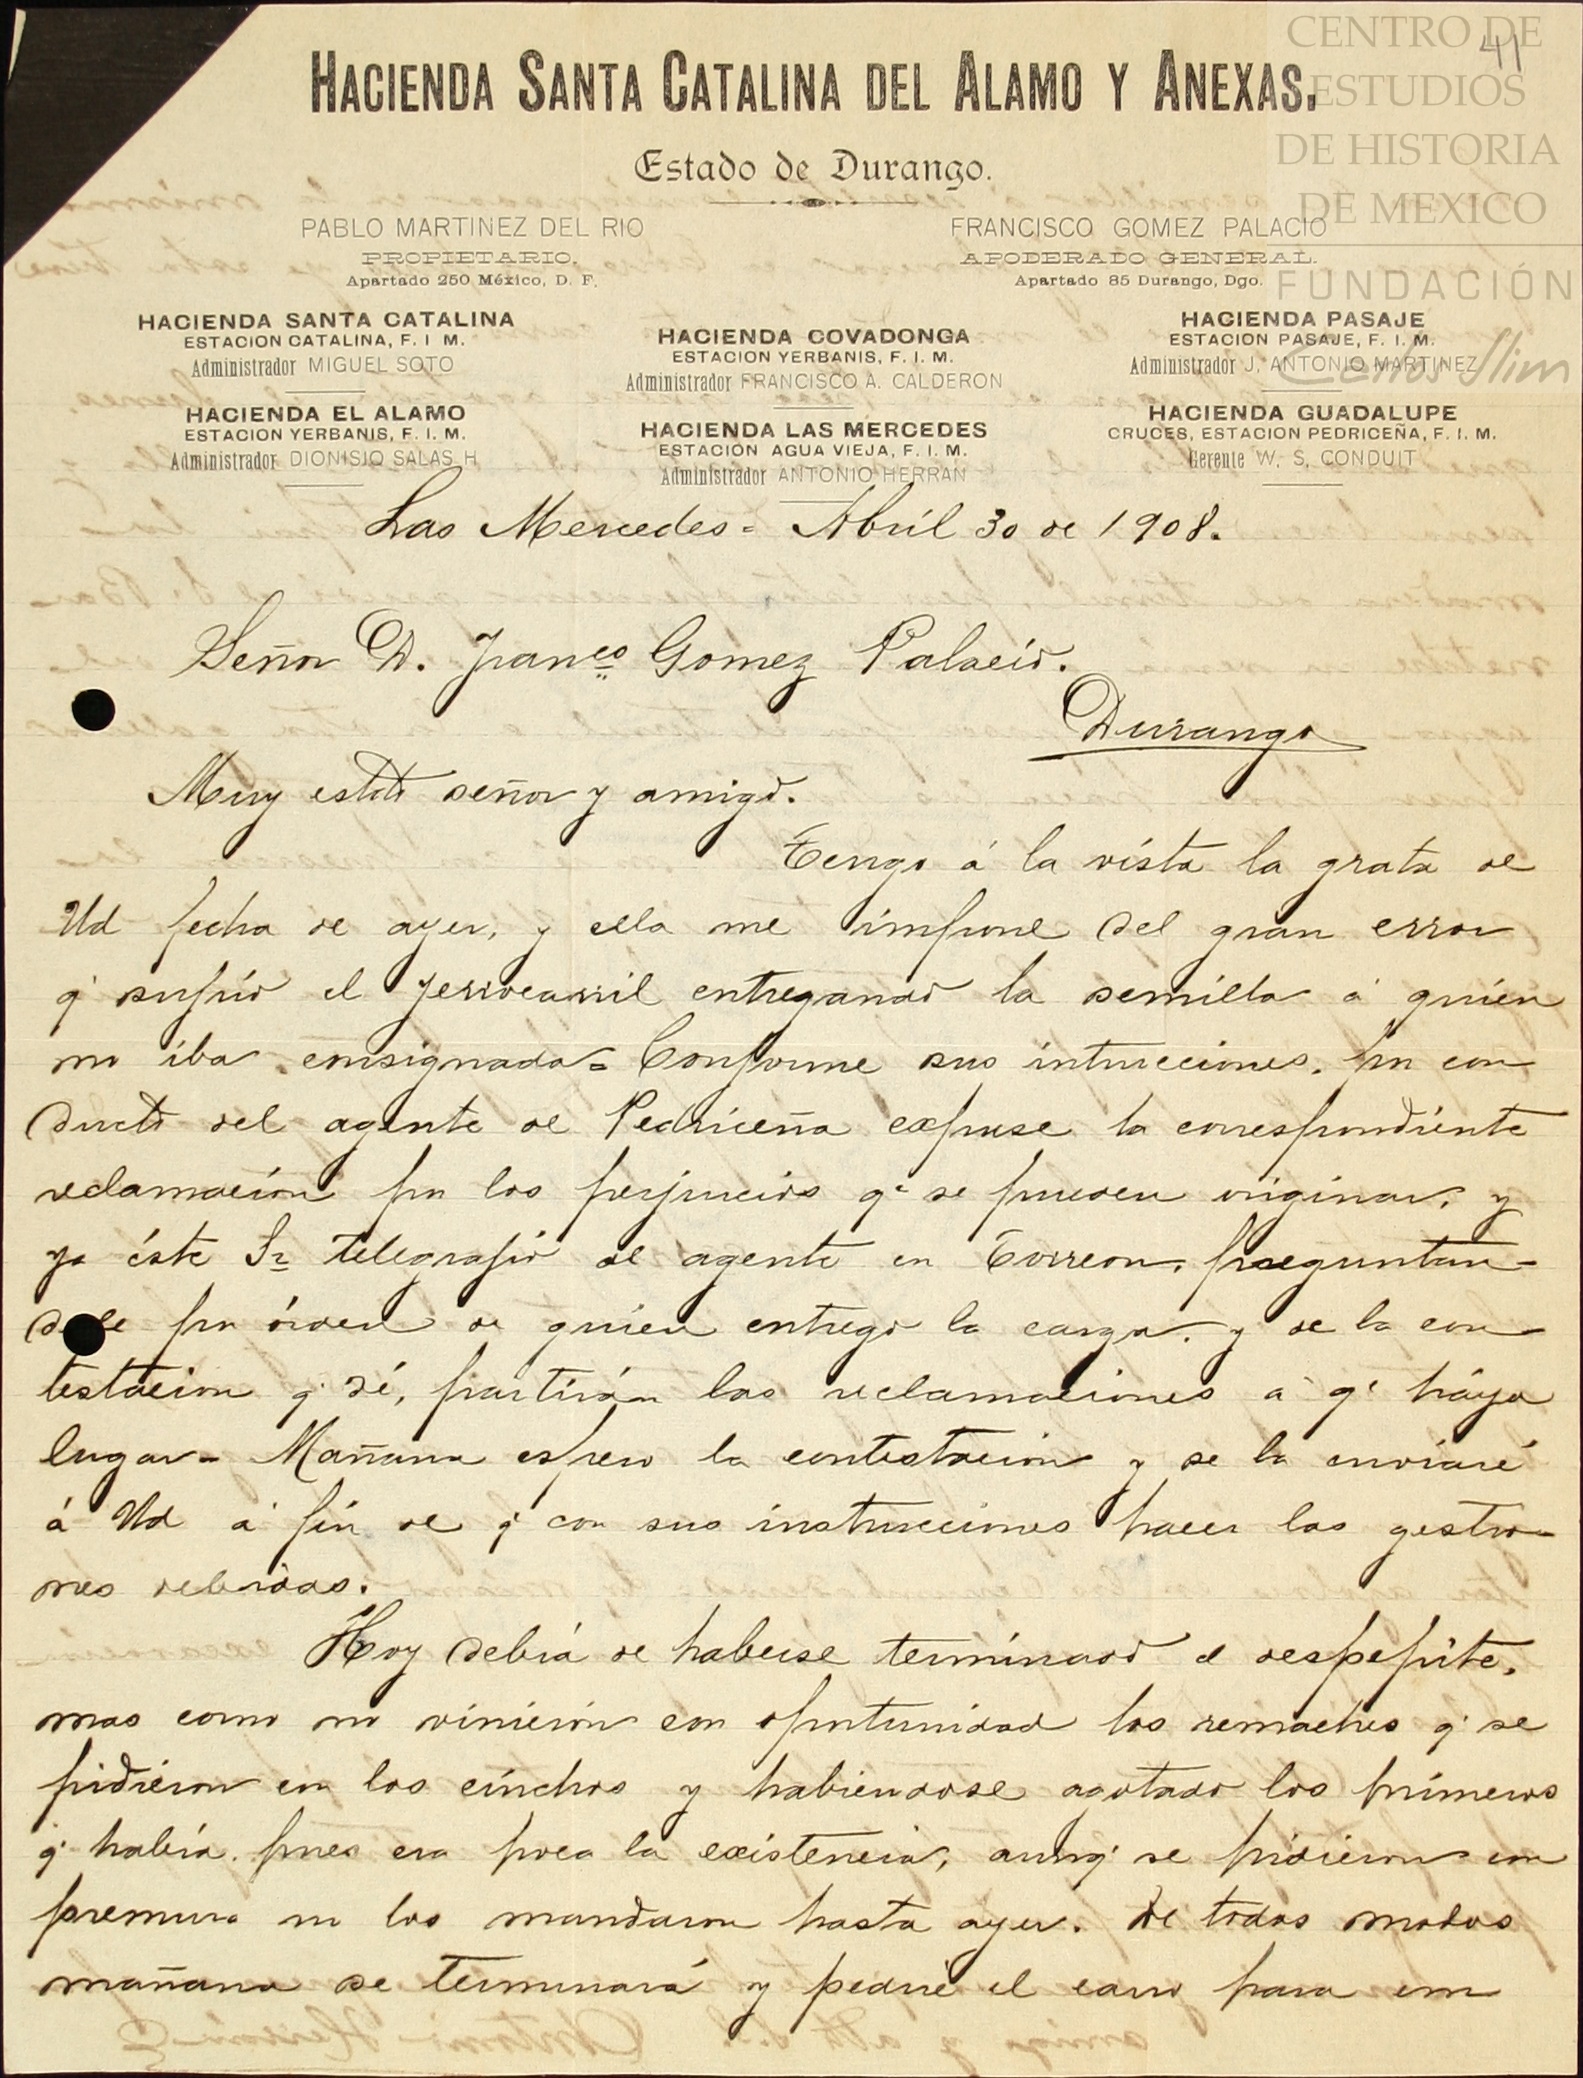 CENTRO DE
ESTUDIOS
DE HISTORIA
DE MEXICO
FUNDACIÓN
Carlos Slim
41
HACIENDA SANTA CATALINA DEL ALAMO Y ANEXAS.
Estado de Durango.
PABLO MARTINEZ DEL RIO
PROPIETARIO.
Apartado 250 México, D. F.
FRANCISCO GOMEZ PALACIO
APODERADO GENERAL.
Apartado 85 Durango, Dgo.
HACIENDA SANTA CATALINA
ESTACION CATALINA, F. I M.
Administrador MIGUEL SOTO
HACIENDA EL ALAMO
ESTACION YERBANIS, F. I. M.
Administrador DIONISIO SALAS H
HACIENDA COVADONGA
ESTACION YERBANIS, F. I. M.
Administrador FRANCISCO A. CALDERON
HACIENDA LAS MERCEDES
ESTACION AGUA VIEJA, F. I. M.
Administrador ANTONIO HERRAN
HACIENDA PASAJE
ESTACION PASAJE, F. I. M.
Administrador J. ANTONIO MARTINEZ
HACIENDA GUADALUPE
CRUCES, ESTACION PEDRICEÑA, F. I. M.
Gerente W. S. CONDUIT
Las Mercedes = Abríl 30 de 1908.
Señor D. Franco Gomez Palacio.
Durango
Muy estdo señor y amigo.
Tengo á la vista la grata de
Ud fecha de ayer, y ella me impone del gran error
q' sufrió el ferrocarril entregando la semilla á quien
no iba consignada = Conforme sus intrucciones, por con
ducto del agente de Pedriceña expuse la correspondiente
reclamación por los perjuicios q' se pueden originar, y
ya éste Sr telegrafió al agente en Torreon, preguntan-
dole por órden de quien entregó la carga, y de la con
testacion q' dé, partirán las reclamaciones a q' háya
lugar = Mañana espero la contestacion y se la enviaré
á Ud á fin de q' con sus instrucciones hacer las gestio-
nes debidas.
Hoy debiá de haberse terminado el despepite,
mas como no viniéron con oportunidad los remaches q' se
pidiéron con los cínchos y habiendose agotado los primeros
q' había, pues era poca la existencia, aunq' se pidieron con
premura no los mandaron hasta ayer. De todos modos
mañana se terminará y pediré el carro para em